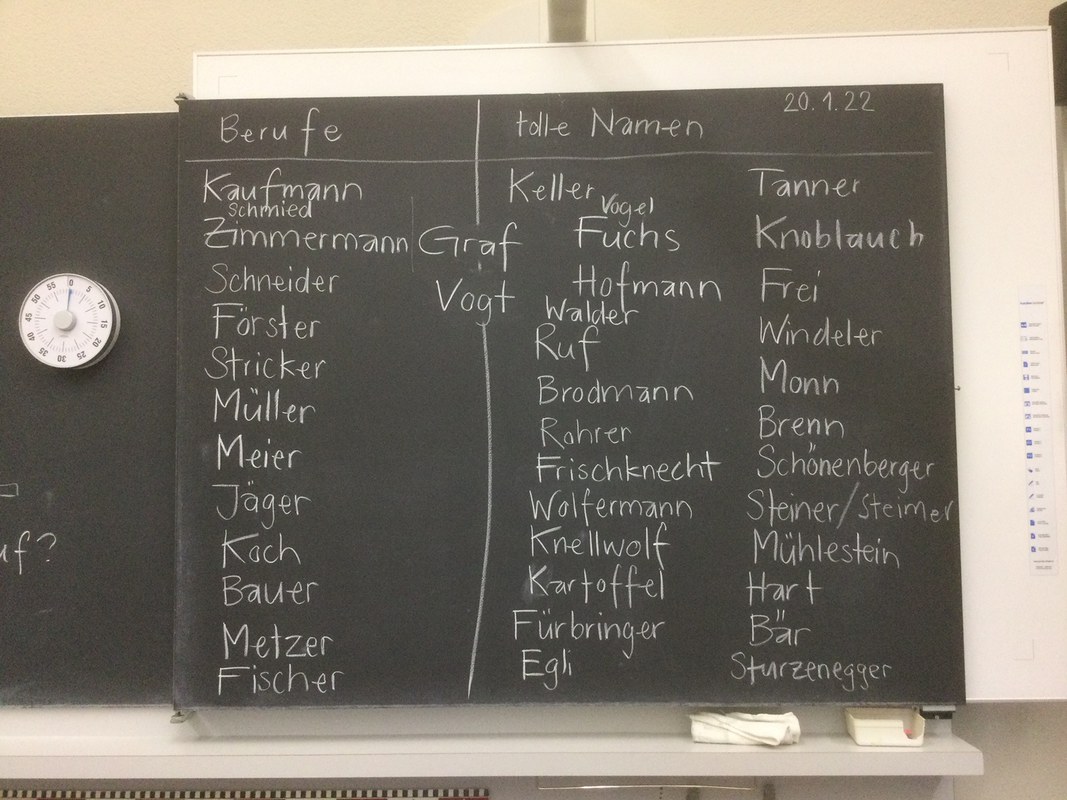 20.1.22
Berufe
tolle Namen
Kaufmann
Schmied
Zimmermann
Schneider
Förster
Stricker
Müller
Meier
Jäger
Koch
Bauer
Metzer
Fischer
Graf
Vogt
Keller
Vogel
Fuchs
Hofmann
Walder
Ruf
Brodmann
Rohrer
Frischknecht
Wolfermann
Knellwolf
Kartoffel
Fürbringer
Egli
Tanner
Knoblauch
Frei
Windeler
Monn
Brenn
Schönenberger
Steiner/Steimer
Mühlestein
Hart
Bär
Sturzenegger
uf?
0
5
10
15
20
25
30
35
40
45
50
55